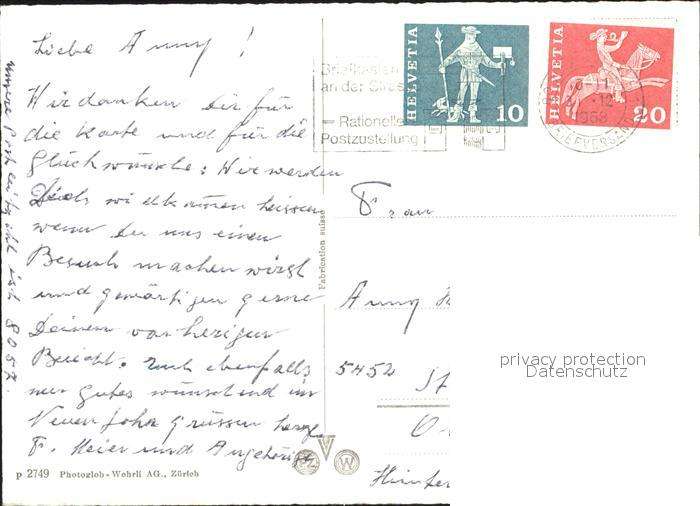 Liebe Anny!
Wir danken dir für
die Karte und für die
Glückwünsche: Wir werden
Dich willkommen heissen
wenn du uns einen
Besuch machen wirst
und gewärtigen gerne
Deinen vorherigen
Bericht. Euch ebenfalls
nur gutes wünschend im
Neuen Jahr grüssen herzl.
F. Meier und Angehörige
unsere Postleitzahl ist 8057.
P 2749 Photoglob-Wehrli AG., Zürich
Fabrication suisse
HELVETIA
10
HELVETIA
20
Briefkasten
an der Stras
— Rationelle
Postzustellung
12
1968
BRIEFVERSAND
Frau
Anny
5452
privacy protection
Datenschutz
PG
V
W